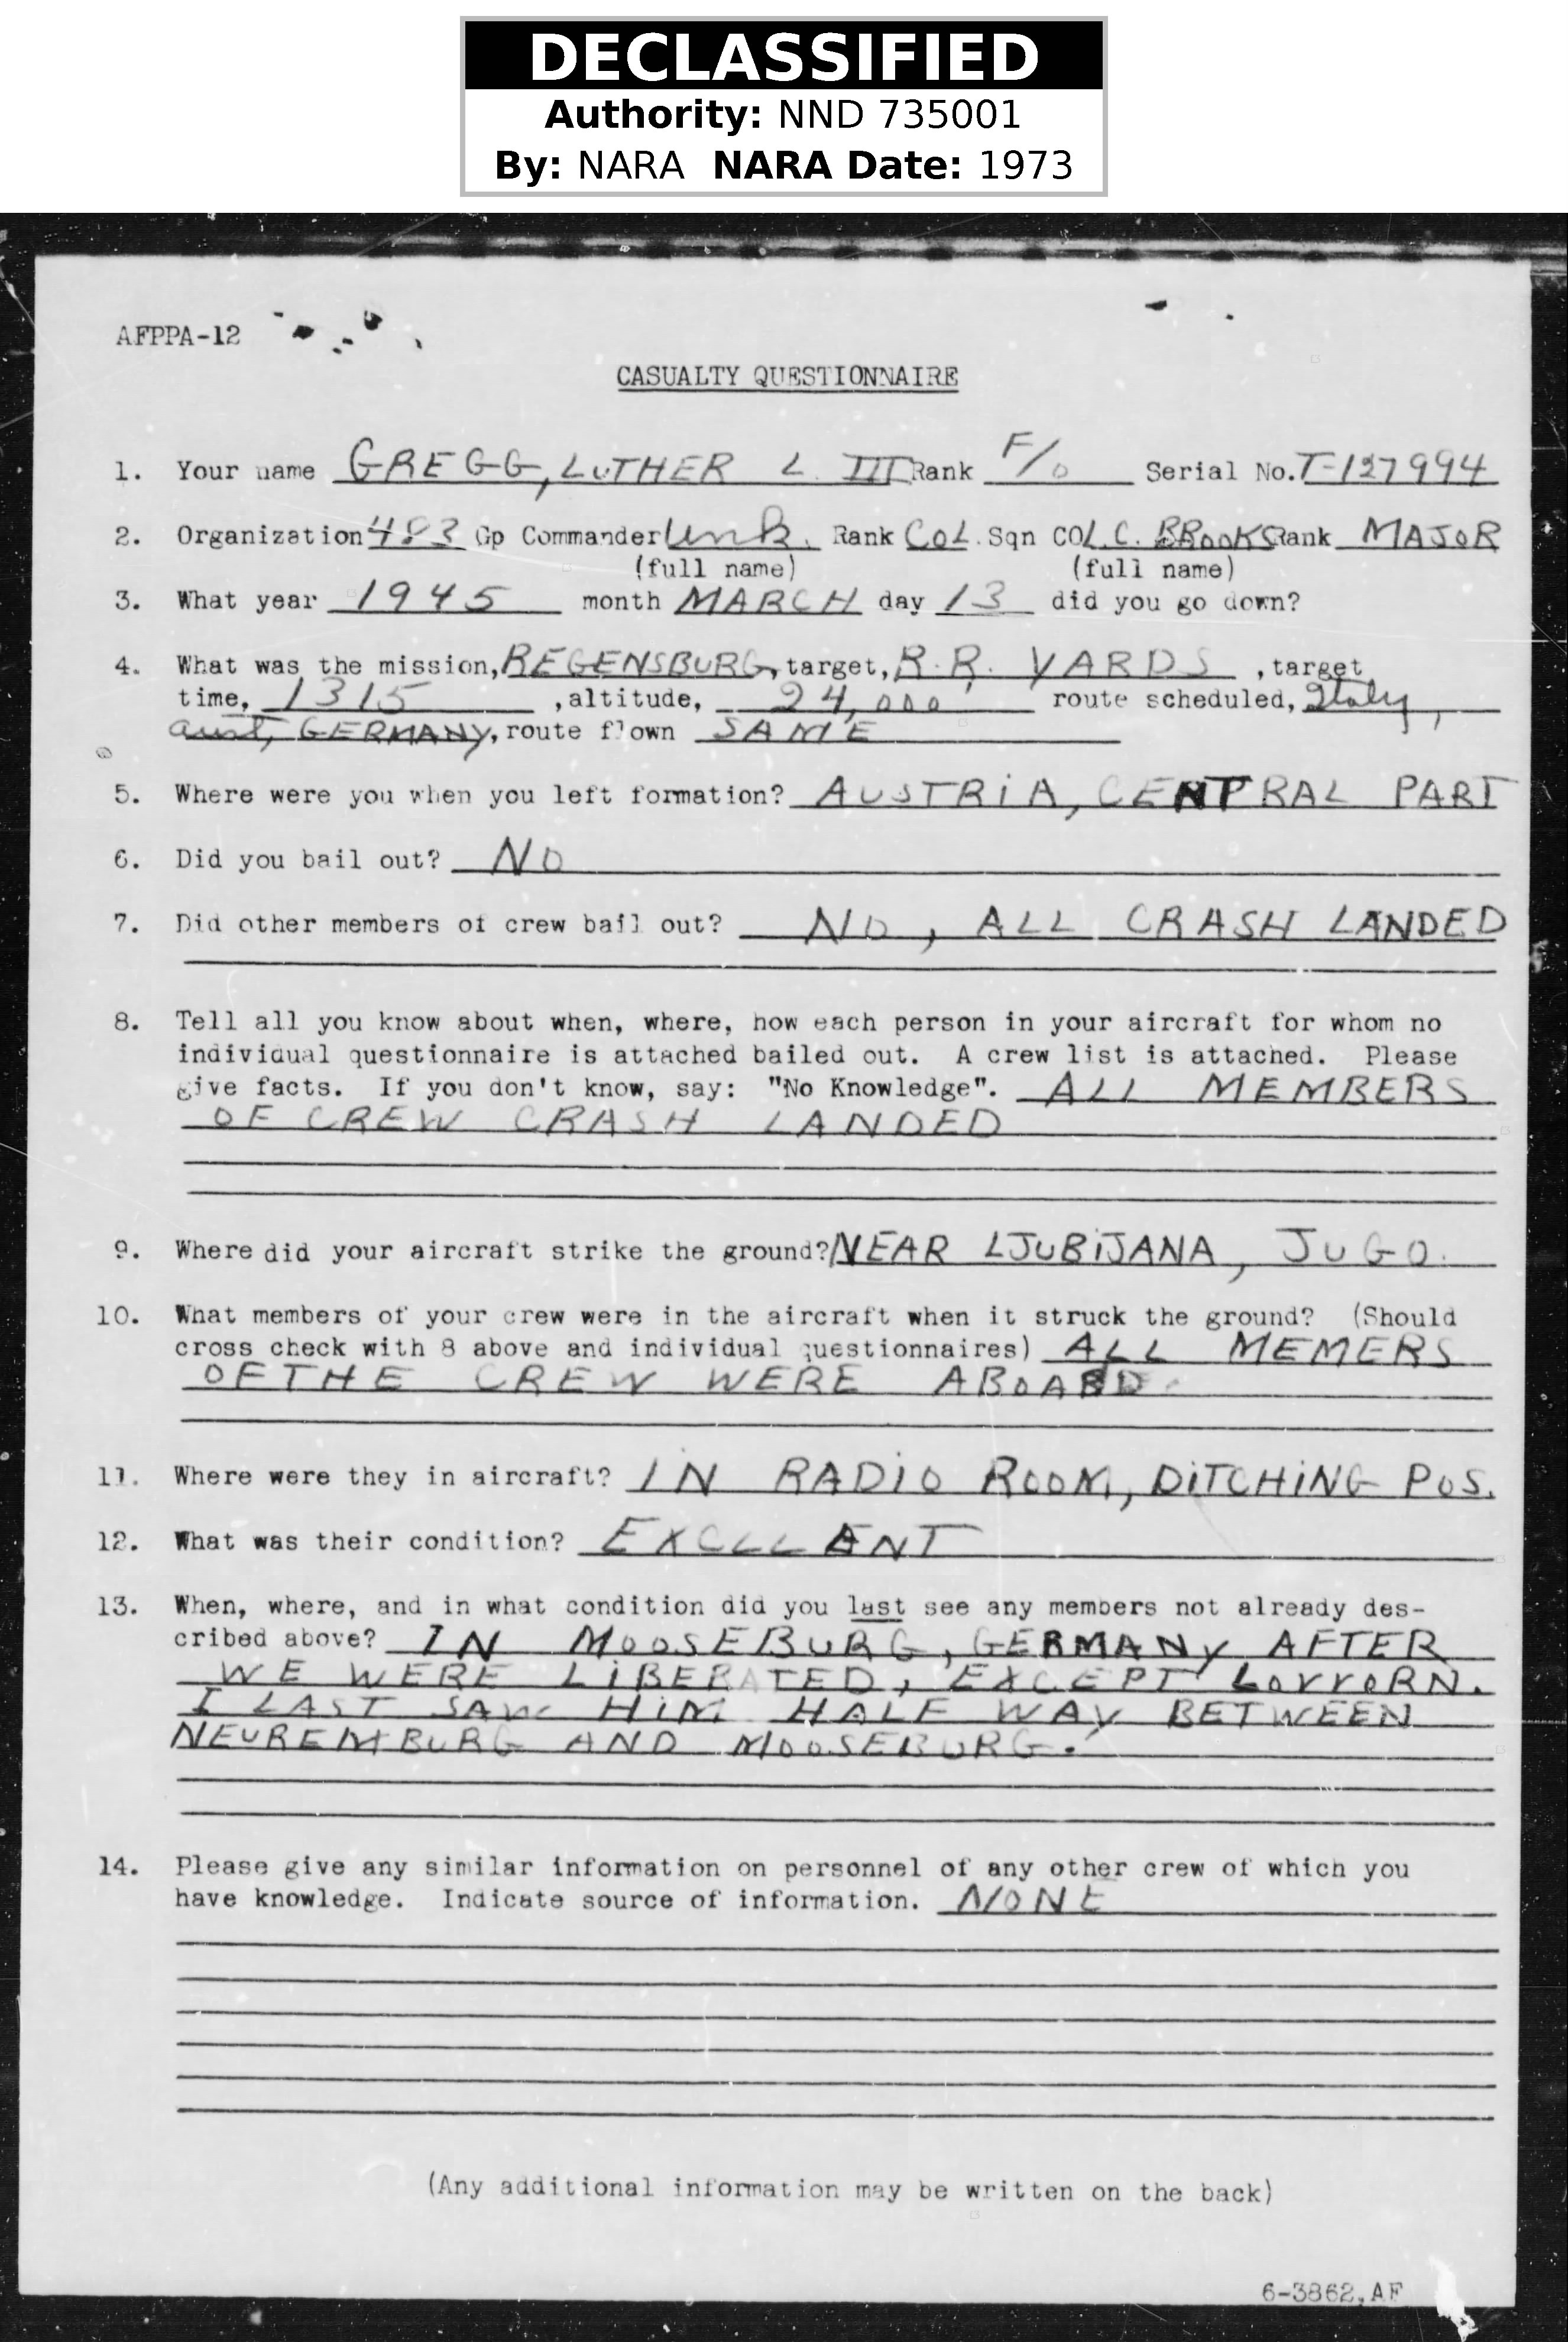 DECLASSIFIED
Authority: NND 735001
By: NARA NARA Date: 1973
AFPPA-12
CASUALTY QUESTIONNAIRE
1. Your name GREGG, LUTHER L. III Rank F/O Serial No. T-127994
2. Organization 483 Gp Commander Unk. Rank COL. Sqn CO L.C. BROOKS Rank MAJOR
(full name) (full name)
3. What year 1945 month MARCH day 13 did you go down?
4. What was the mission, REGENSBURG, target, R.R. YARDS , target
time, 1315 , altitude, 24,000' route scheduled, Italy,
aust, GERMANY, route flown SAME
5. Where were you when you left formation? AUSTRIA, CENTRAL PART
6. Did you bail out? NO
7. Did other members of crew bail out? NO, ALL CRASH LANDED
8. Tell all you know about when, where, how each person in your aircraft for whom no
individual questionnaire is attached bailed out. A crew list is attached. Please
give facts. If you don't know, say: "No Knowledge". ALL MEMBERS
OF CREW CRASH LANDED
9. Where did your aircraft strike the ground? NEAR LJUBIJANA, JUGO.
10. What members of your crew were in the aircraft when it struck the ground? (Should
cross check with 8 above and individual questionnaires) ALL MEMERS
OF THE CREW WERE ABOARD.
11. Where were they in aircraft? IN RADIO ROOM, DITCHING POS.
12. What was their condition? EXCLLENT
13. When, where, and in what condition did you last see any members not already des-
cribed above? IN MOOSEBURG, GERMANY AFTER
WE WERE LIBERATED, EXCEPT LOVVORN.
I LAST SAW HIM HALF WAY BETWEEN
NEUREMBURG AND MOOSEBURG.
14. Please give any similar information on personnel of any other crew of which you
have knowledge. Indicate source of information. NONE
(Any additional information may be written on the back)
6-3862,AF